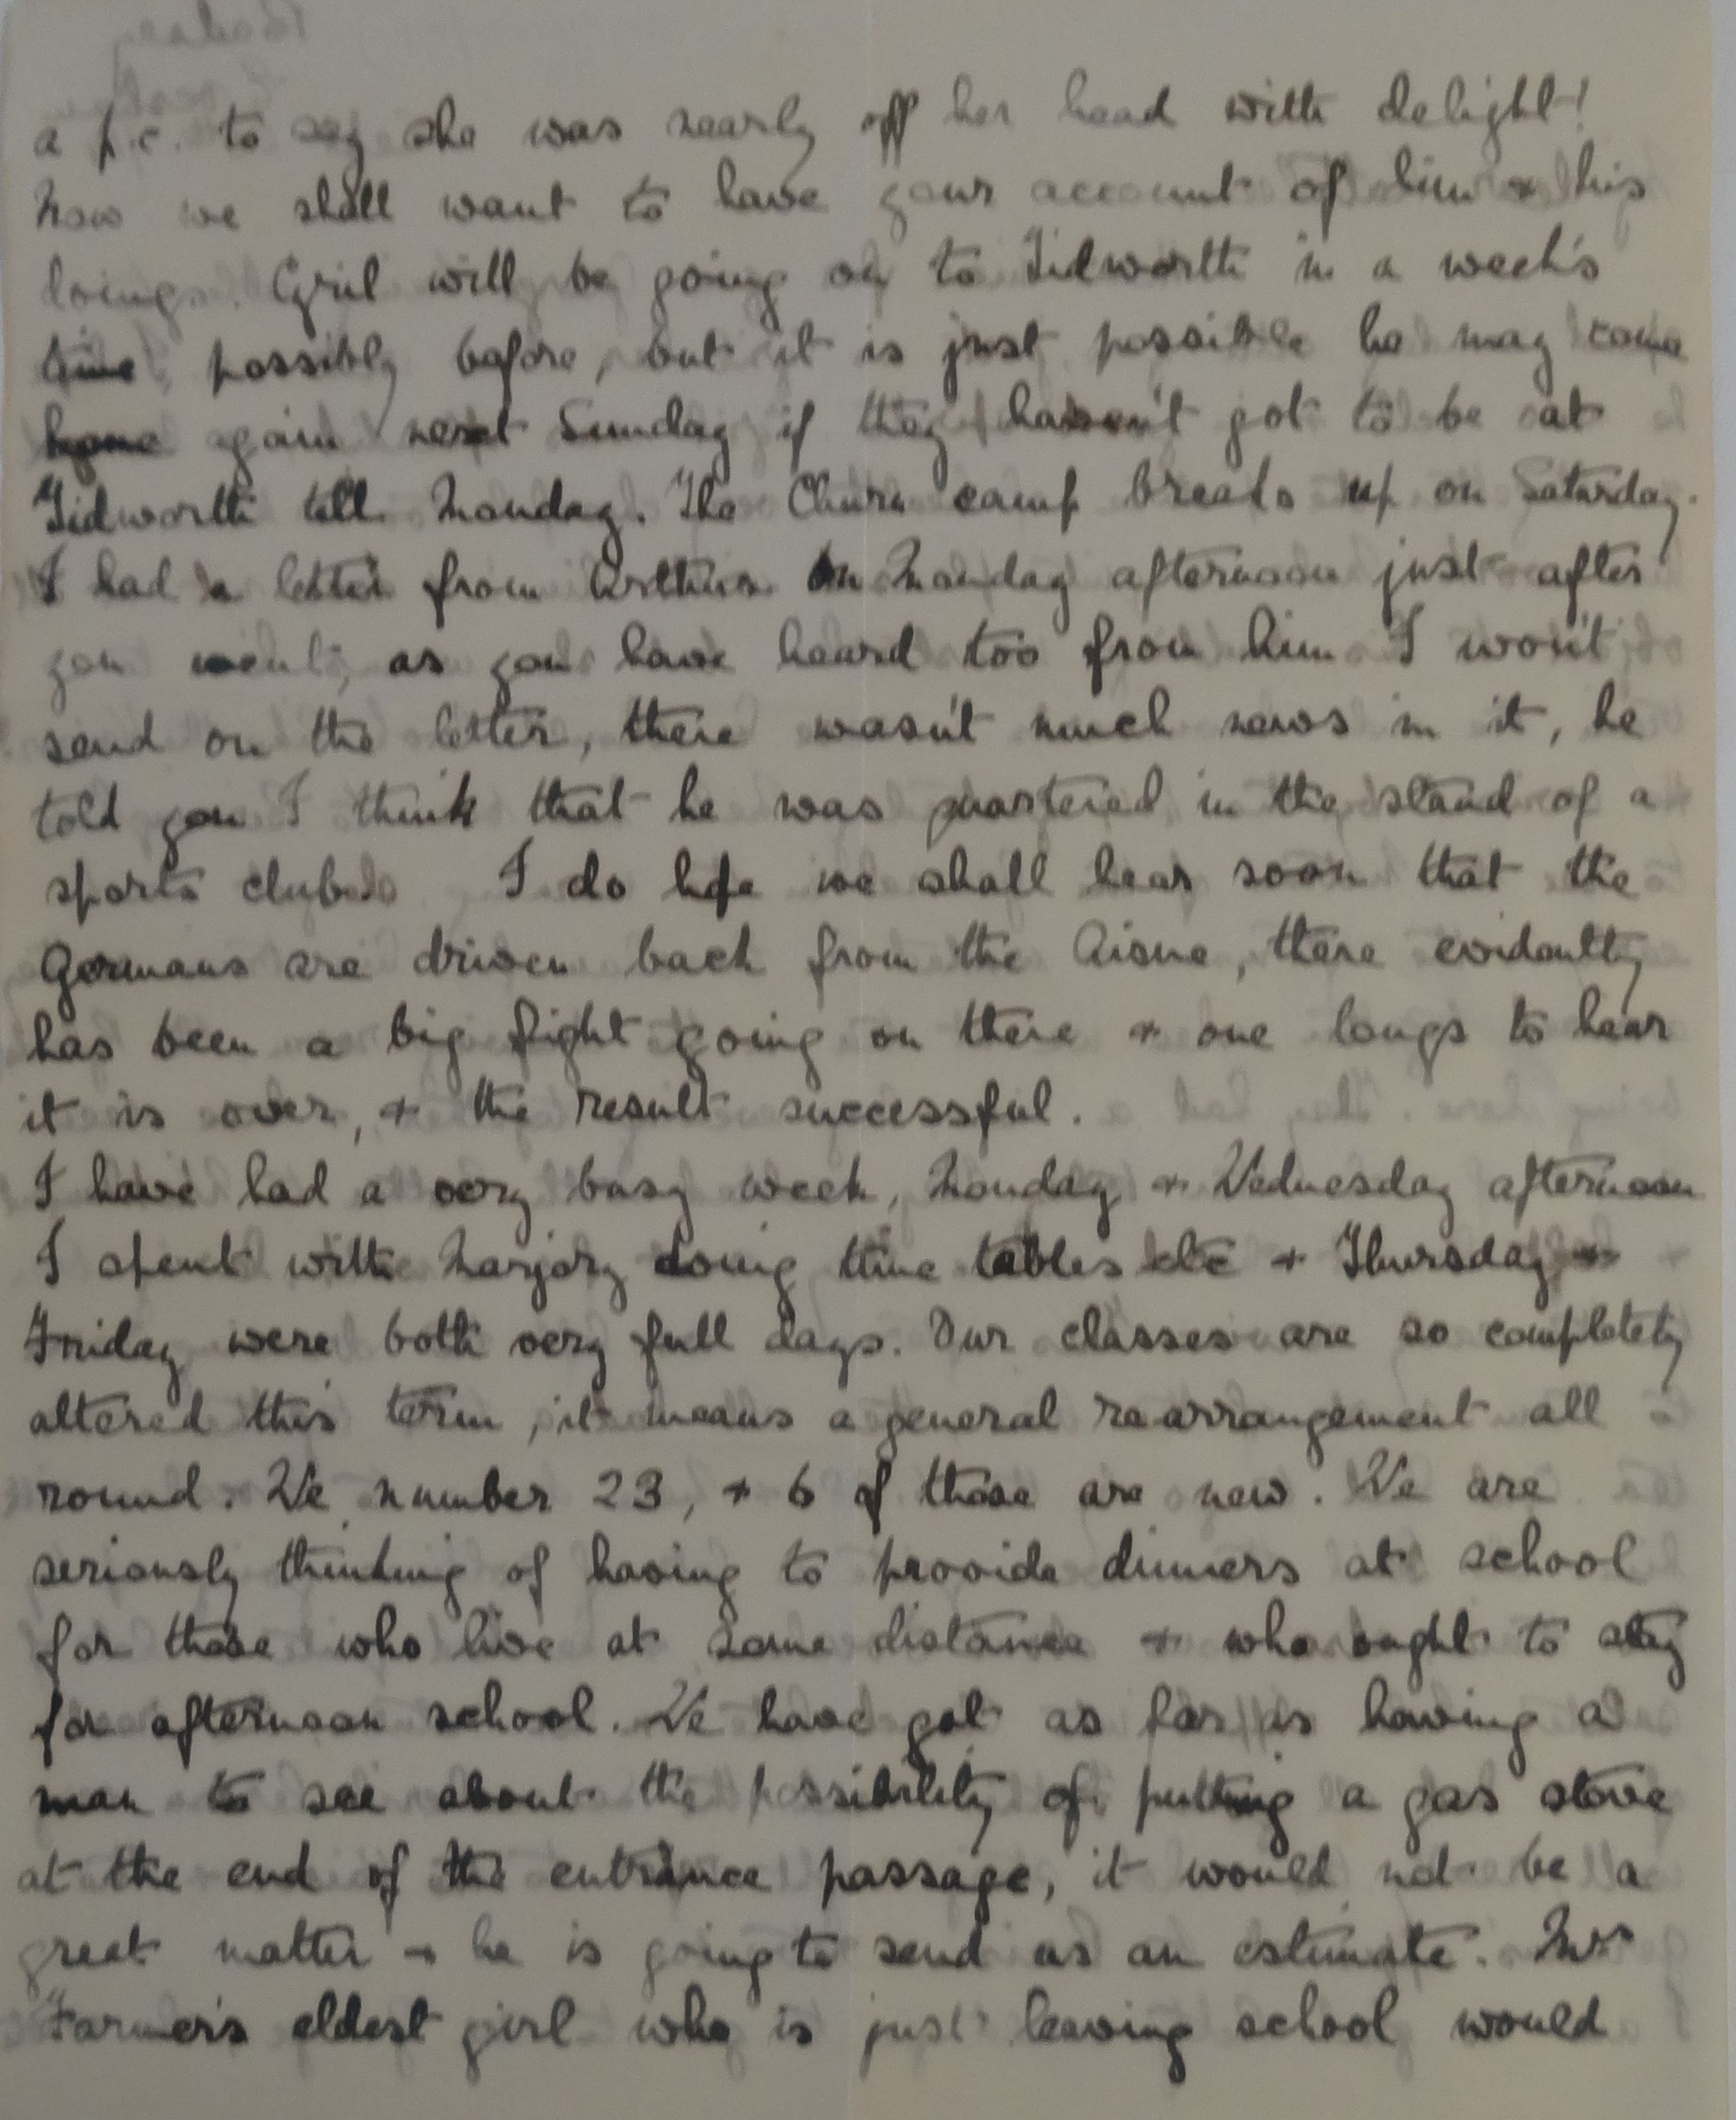 a p.c. to say she was nearly off her head with delight!
Now we shall want to have your account of him & his
doings. Cyril will be going on to Tidworth in a week's
time, possibly before, but it is just possible he may come
home again next Sunday if they haven't got to be at
Tidworth till Monday. The Churn camp breaks up on Saturday.
I had a letter from Arthur on Monday afternoon just after
you went, as you have heard too from him I won't
send on the letter, there wasn't much news in it, he
told you I think that he was quartered in the stand of a
sports club. I do hope we shall hear soon that the
Germans are driven back from the Aisne, there evidently
has been a big fight going on there & one longs to hear
it is over, & the result successful.
I have had a very busy week, Monday & Wednesday afternoon
I spent with Marjory doing time tables etc & Thursday &
Friday were both very full days. Our classes are so completely
altered this term, it means a general rearrangement all
round. We number 23, & 6 of those are new. We are
seriously thinking of having to provide dinners at school
for those who live at some distance & who ought to stay
for afternoon school. We have got as far as having a
man to see about the possibility of putting a gas stove
at the end of the entrance passage, it would not be a
great matter & he is going to send us an estimate. Mrs
Farmer's eldest girl who is just leaving school would